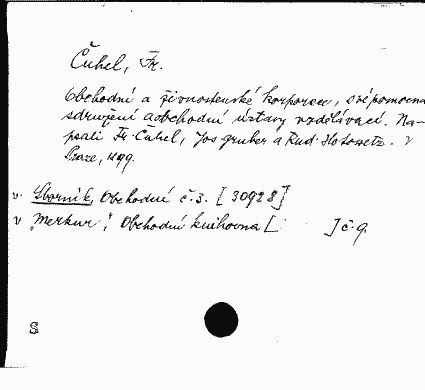 Čuhel, Fr.
Obchodní a živnostenské korporace, svépomocná
sdružení a obchodní ústavy vzdělávací. Na-
psali Fr. Čuhel, Jos. Gruber a Rud. Hotowetz. V
Praze, 1899.
v. Sborník, Obchodní č. 3. [30928]
v „Merkur", Obchodní knihovna [ ] č. 9.
S